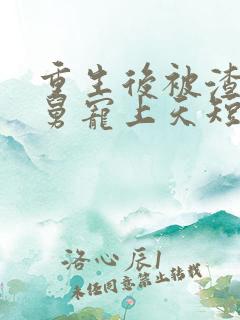 重生後被渣
舅寵上天短
洛心辰1
未经同意禁止转载